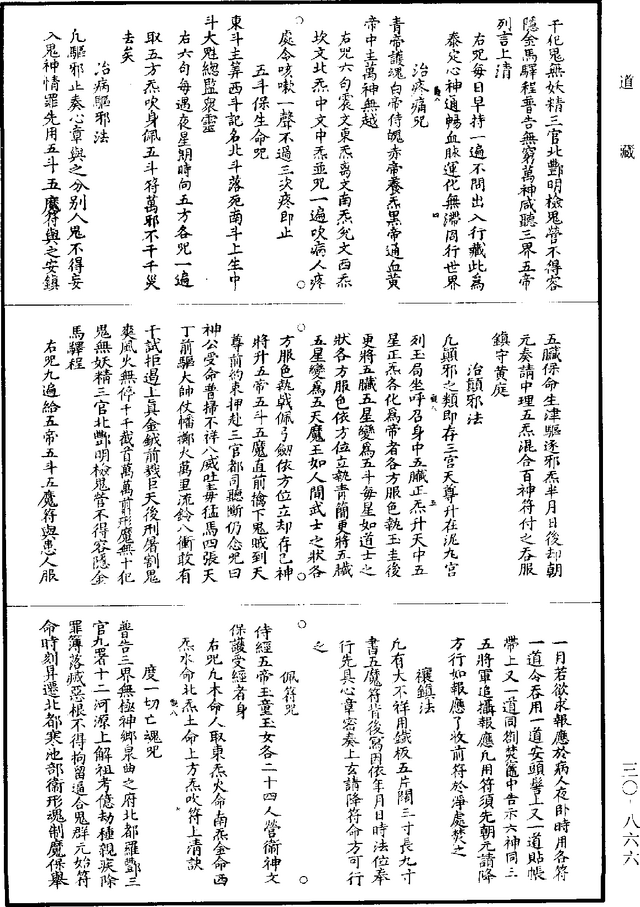 道藏
干犯鬼無妖精三官北酆明檢鬼營不得容
隱金馬驛程普告無窮萬神咸聽三界五帝
列言上清
右咒每日早持一遍不問出入行藏此為
泰定心神通暢血脉運化無滯周行世界
治疼痛咒
青帝護魂白帝侍魄赤帝養炁黑帝通血黃
帝中主萬神無越
右咒六句震文東炁离文南炁兌文西炁
坎文北炁中文中炁並咒一遍吹病人疼
處令咳嗽一聲不過三次疼即止
五斗保生命咒
東斗主筭西斗記名北斗落死南斗上生中
斗大魁總監衆靈
右六句每遇夜星期時向五方各咒一遍
取五方炁吹身佩五斗符萬邪不干千災
去矣
治病驅邪法
凡驅邪止奏心章與之分別人鬼不得妄
入鬼神情罪先用五斗五魔符與之安鎮
五臟保命生津驅逐邪炁半月日後却朝
元奏請中理五炁混合百神符付之吞服
鎮守黃庭
治顛邪法
凡顛邪之類即存三宮天尊升在泥丸宮
列玉局坐呼召身中五臟正炁升天中五
星正炁各化為帝者各方服色執玉圭後
更將五臟五星變為五斗每星如道士之
狀各方服色依方位立執青簡更將五臟
五星變為五天魔王如人間武士之狀各
方服色執戟佩弓劍依方位立却存己神
將升五帝五斗五魔直前擒下鬼賊到天
尊前約束押赴三官都司聽斷仍念咒曰
神公受命普掃不祥八威吐毒猛馬四張天
丁前驅大帥仗幡擲火萬里流鈴八衝敢有
干試拒遏上眞金鉞前戮巨天後刑屠割鬼
爽風火無停千千截首萬萬剪形魔無干犯
鬼無妖精三官北酆明檢鬼營不得容隱金
馬驛程
右咒九遍給五帝五斗五魔符與患人服
一月若欲求報應於病人夜卧時用各符
一道令吞用一道安頭髻上又一道貼帳
帶上又一道同符焚竈中告示六神同三
五將軍追攝報應凡用符須先朝元請降
方行如報應了收前符於淨處焚之
禳鎮法
凡有大不祥用鐵板五片闊三寸長九寸
書五魔符背後寫因依年月日時法位奉
行先具心章密奏上玄請降符命方可行
之
佩符咒
侍經五帝玉童玉女各二十四人營衛神文
保護受經者身
右咒凡木命人取東炁火命南炁金命西
炁水命北炁土命上方炁吹符上清訣
度一切亡魂咒
普告三界無極神鄉泉曲之府北都羅酆三
官九署十二河源上解祖考億劫種親疾除
罪簿落滅惡根不得拘留逼合鬼群元始符
命時刻昇遷北都寒池部衛形魂制魔保舉
三〇·八六六